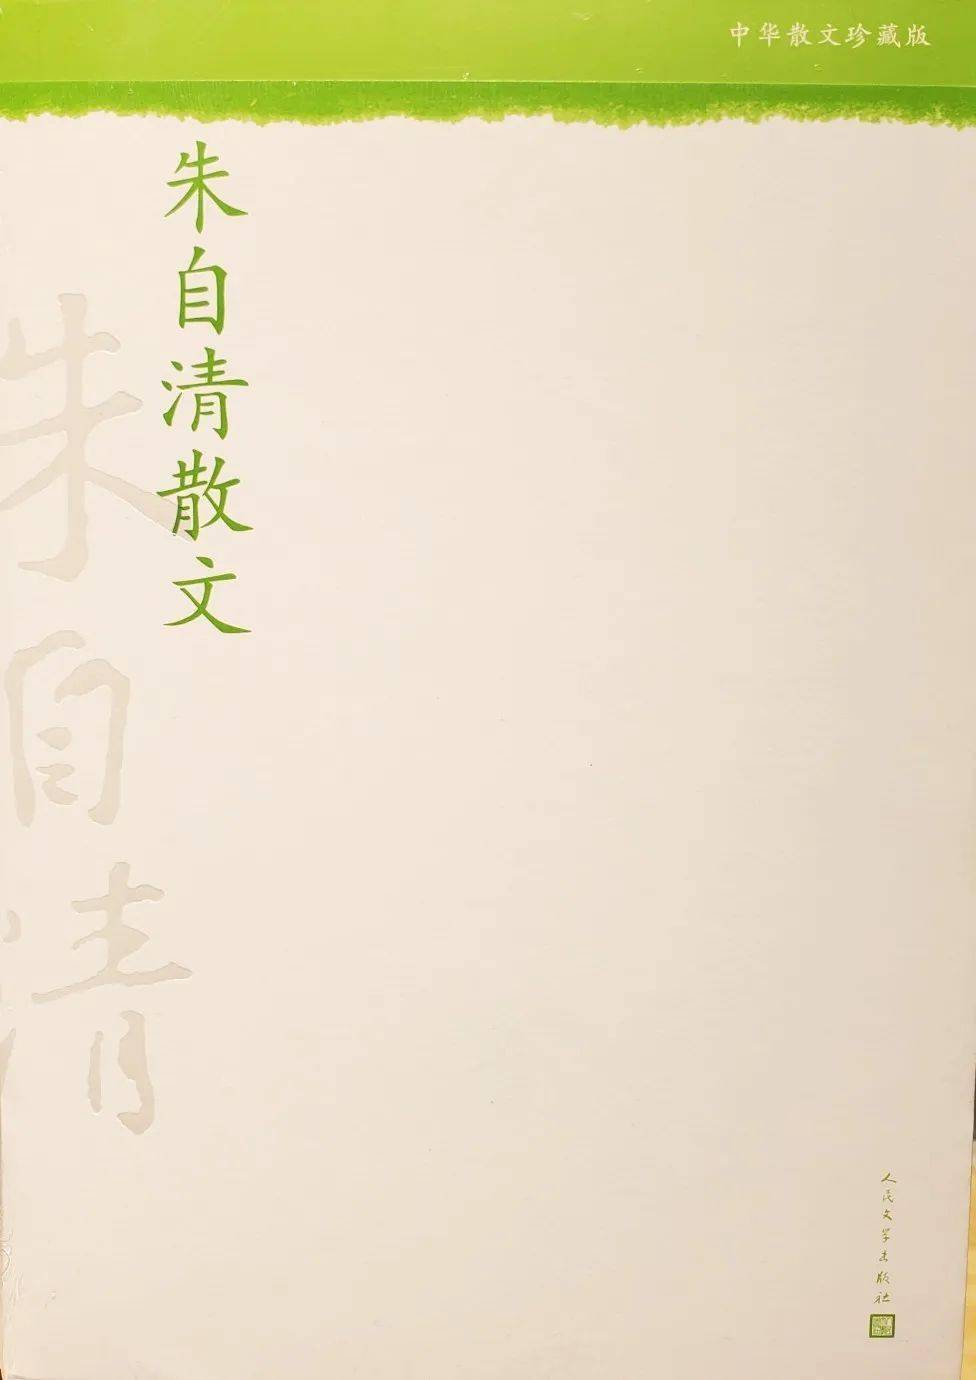 中华散文珍藏版
朱自清散文
朱自清
人民文学出版社